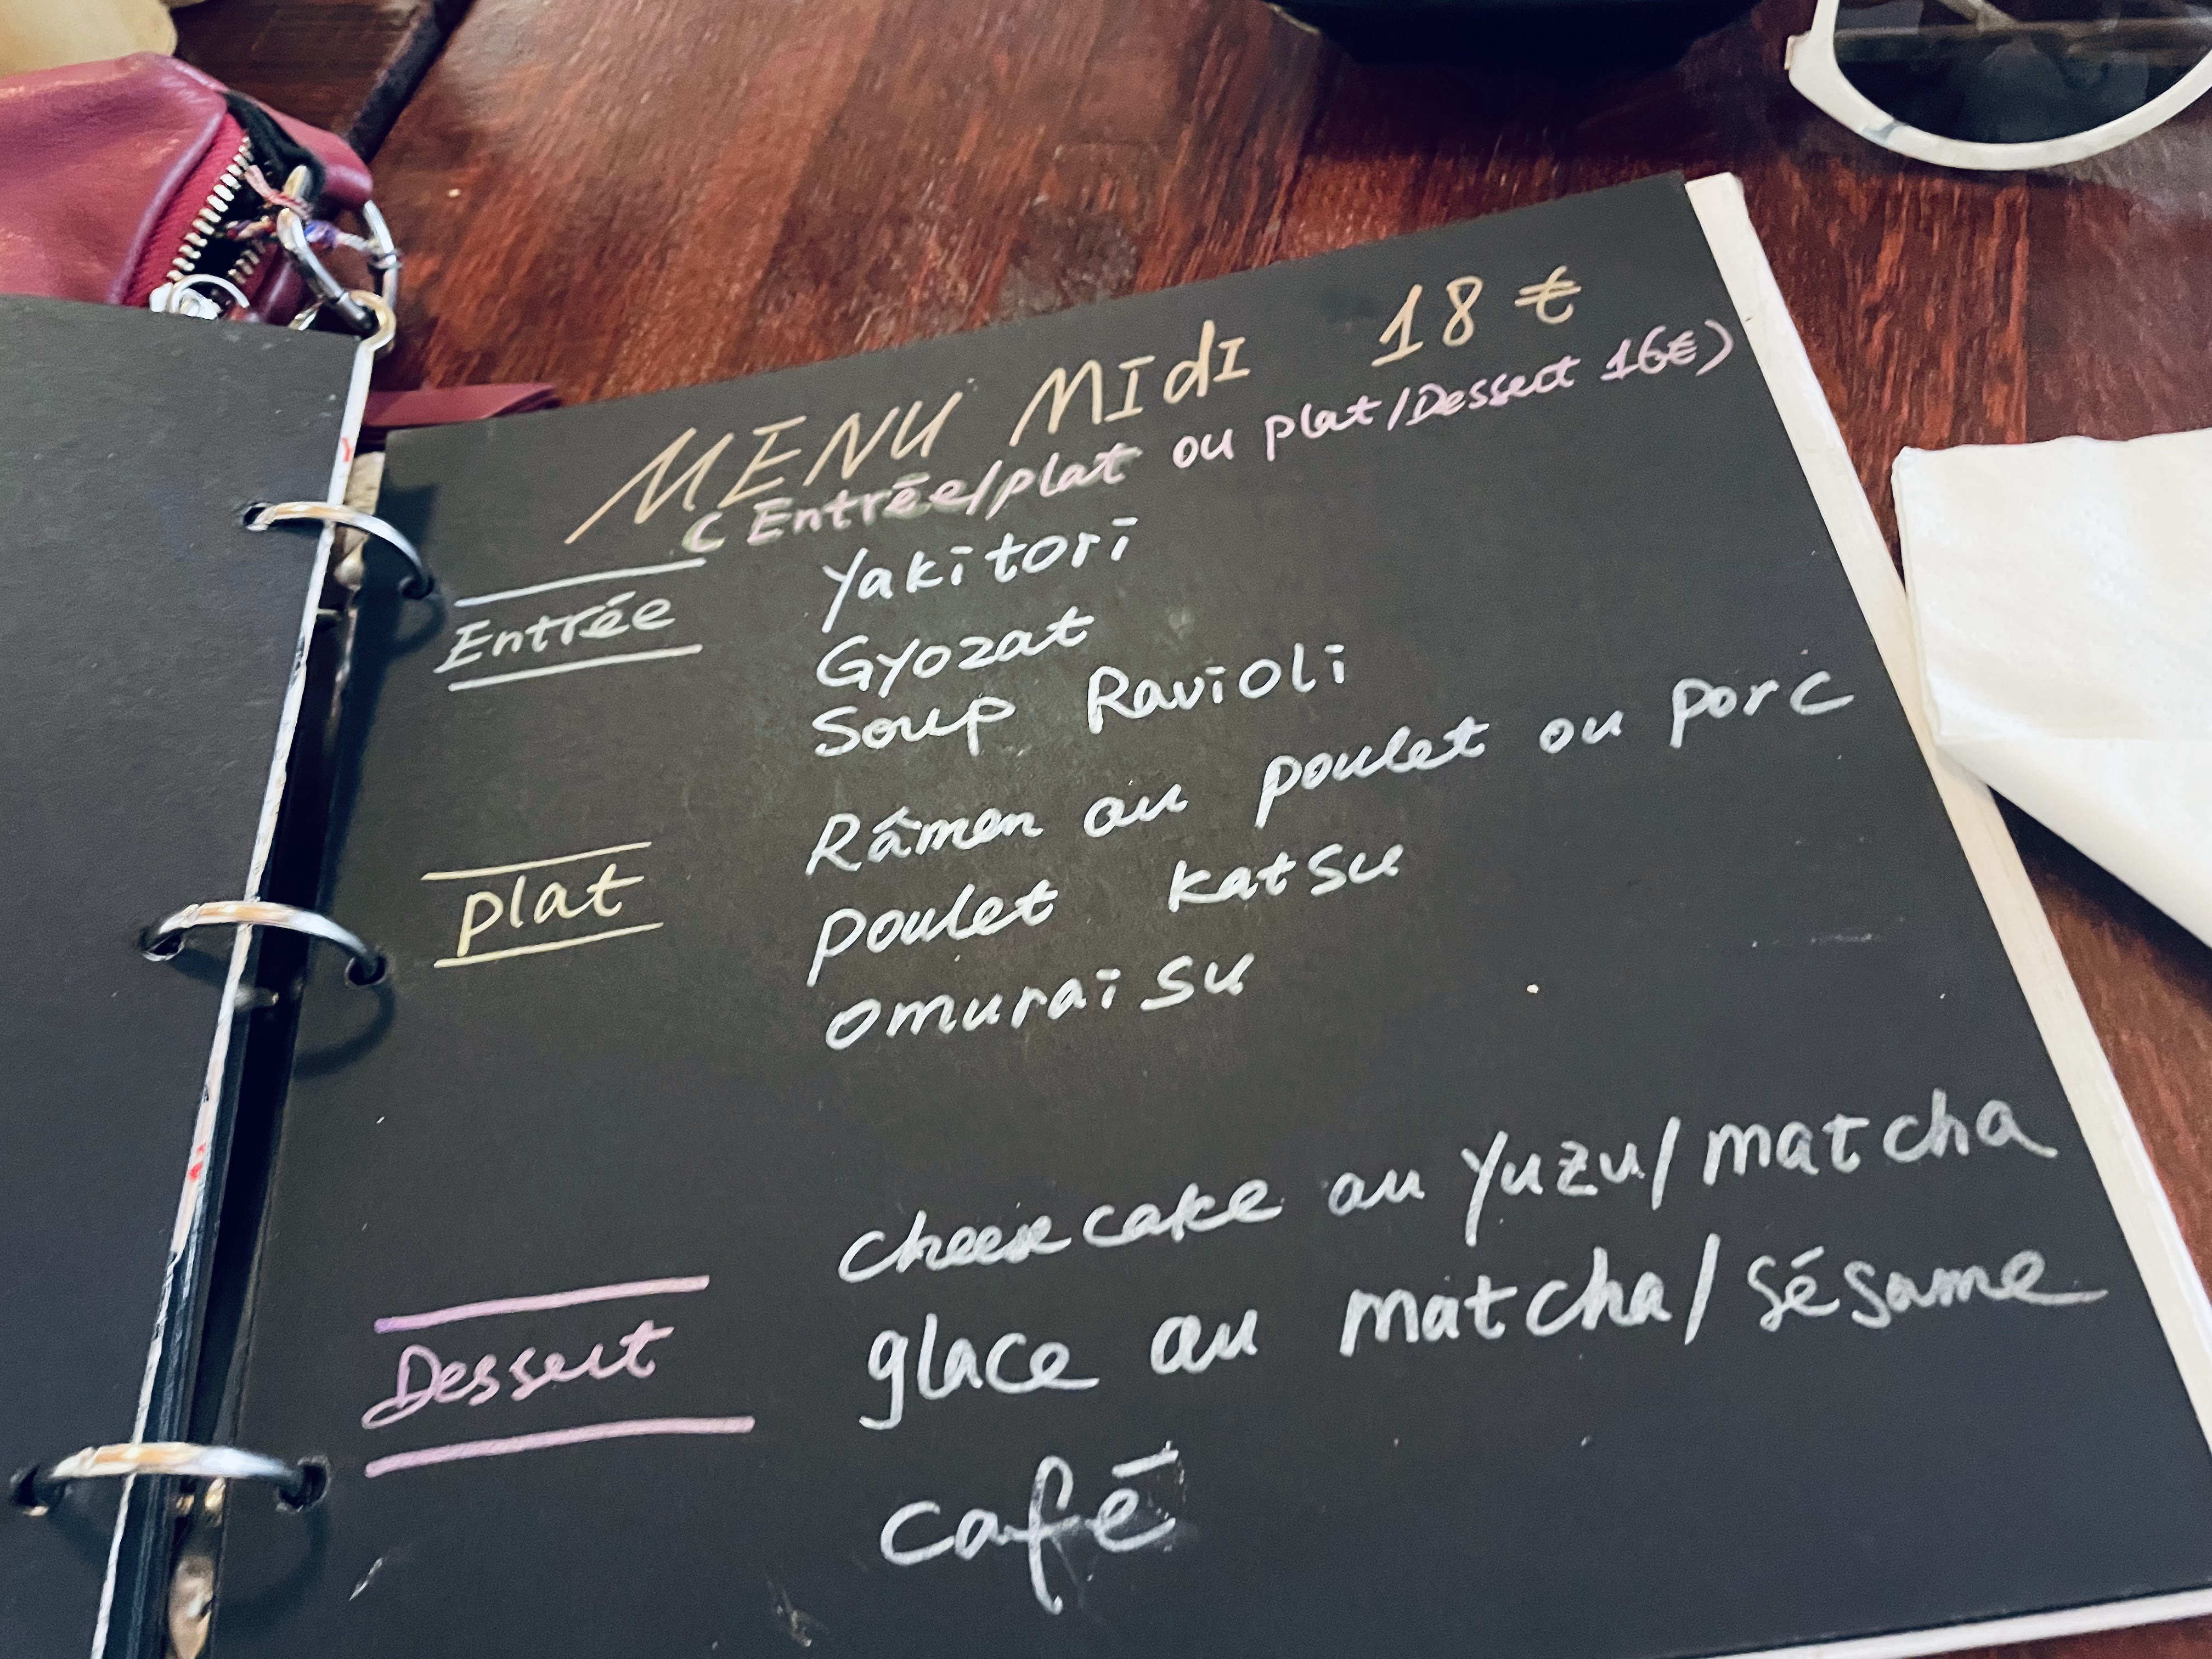 MENU MIdI 18 €
( Entrée/plat ou plat/Dessert 16€)
Entrée
Yakitori
Gyozat
Soup Ravioli
plat
Râmen au poulet ou porc
poulet katsu
omuraisu
Dessert
cheese cake au yuzu/matcha
glace au matcha/sésame
café